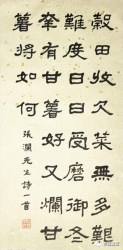 穀田收欠菜無多艱
難度日日受磨御冬
幸有甘薯好又爛甘
薯將如何
張瀾先生詩一首